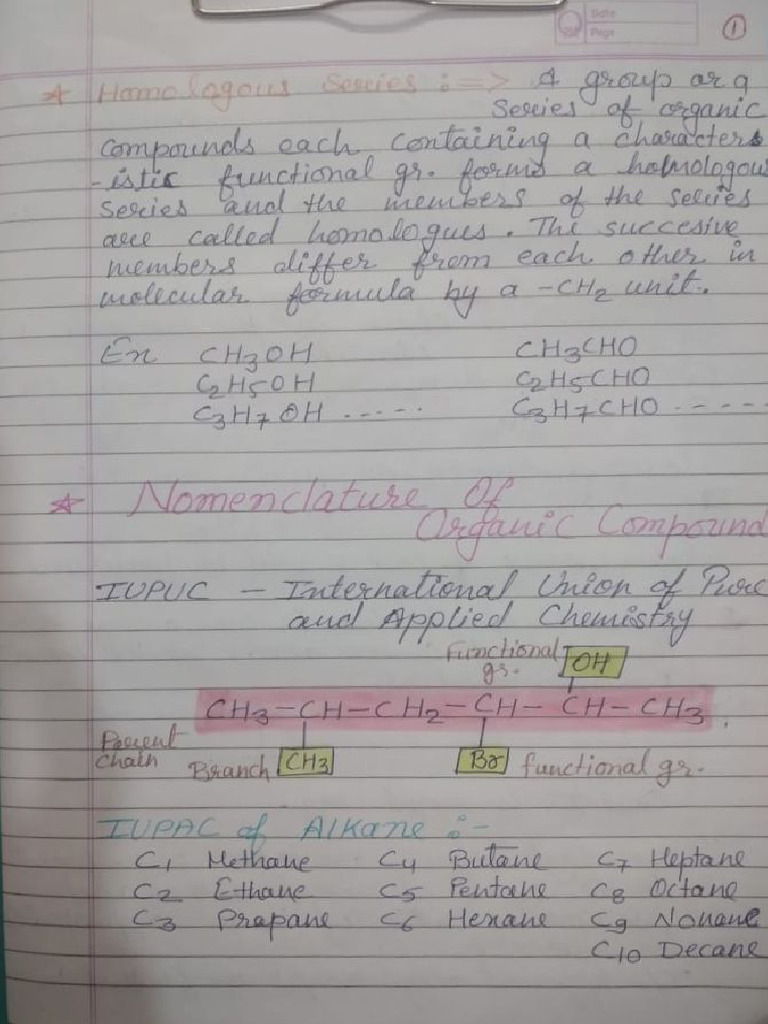 Date
Page
1
* Homologous Series :=> A group or a
Series of organic
compounds each containing a character
-istic functional gr. forms a homologous
series and the members of the series
are called homologues. The succesive
members differ from each other in
molecular formula by a -CH2 unit.
Ex CH3OH CH3CHO
C2H5OH C2H5CHO
C3H7OH ----- C3H7CHO ----
* Nomenclature Of
Organic Compound
IUPUC - International Union of Pure
and Applied Chemistry
Functional OH
gr.
CH3-CH-CH2-CH-CH-CH3.
Parent
Chain Branch CH3 Br functional gr.
IUPAC of Alkane :-
C1 Methane C4 Butane C7 Heptane
C2 Ethane C5 Pentane C8 Octane
C3 Propane C6 Hexane C9 Nonane
C10 Decane